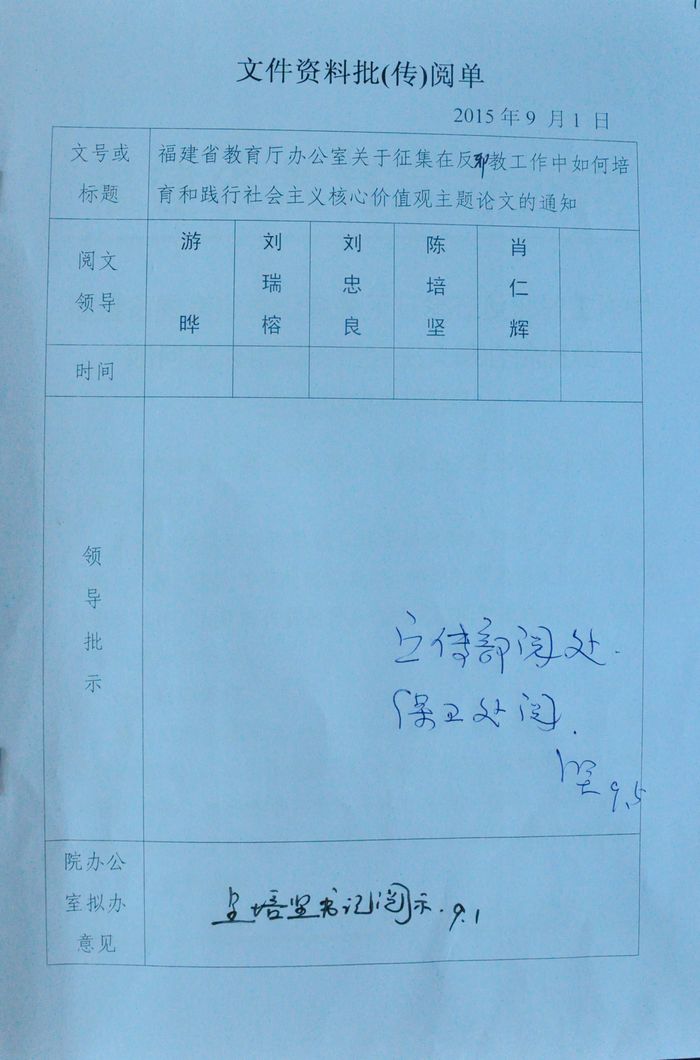 文件资料批(传)阅单
2015年9月1日
文号或
标题
福建省教育厅办公室关于征集在反邪教工作中如何培
育和践行社会主义核心价值观主题论文的通知
阅文
领导
游晔
刘瑞榕
刘忠良
陈培坚
肖仁辉
时间
领导批示
宣传部阅处.
保卫处阅.
坚 9.5
院办公
室拟办
意见
呈培坚书记阅示.9.1